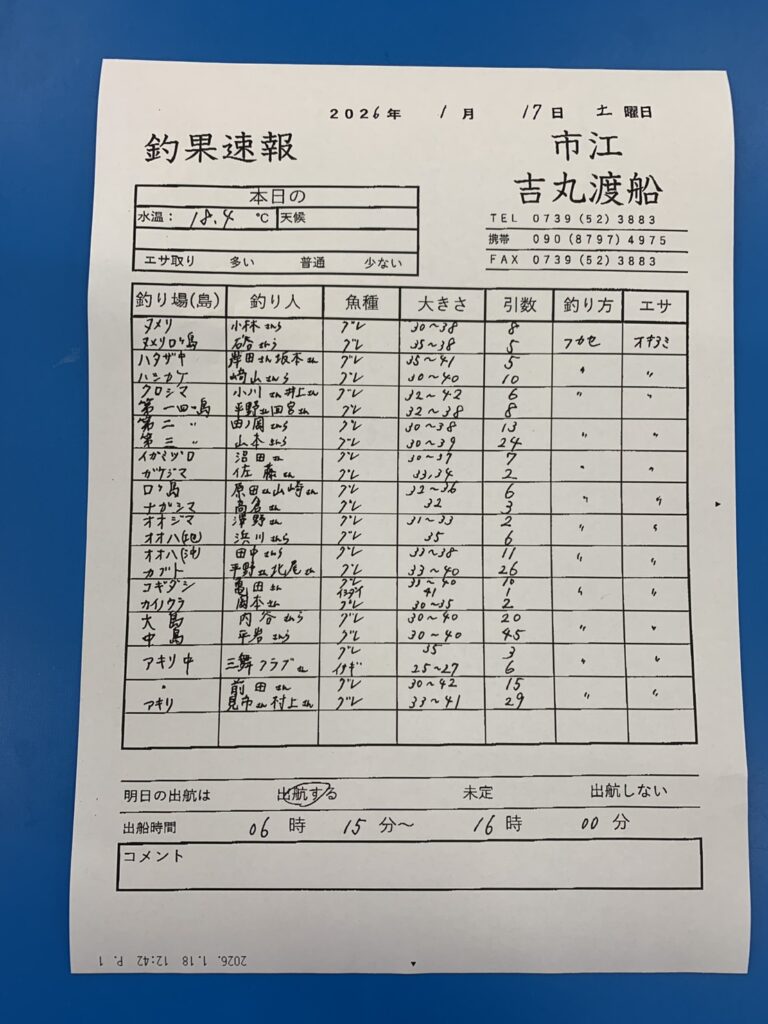 2026年 1月 17日 土曜日
釣果速報
市江
吉丸渡船
本日の
水温： 18.4 ℃ 天候
エサ取り 多い 普通 少ない
TEL 0739(52)3883
携帯 090(8797)4975
FAX 0739(52)3883
釣り場(島) 釣り人 魚種 大きさ 引数 釣り方 エサ
ヌメリ 小林さんら グレ 30～38 8
ヌメリロク島 グレ 35～38 5 フカセ オキアミ
ハタザキ 岸田さん坂本さん グレ 35～41 5
ハシカケ 崎山さんら グレ 30～40 10 〃 〃
クロシマ 小川さん井上さん グレ 32～42 6 〃 〃
第一四ツ島 平野さん田宮さん グレ 32～38 8
第二 〃 由ノ岡さんら グレ 30～38 13
第三 〃 山本さんら グレ 30～39 24 〃 〃
イガミヅロ 沼田さん グレ 30～37 7
ガケジマ 佐藤さん グレ 33,34 2 〃 〃
ロク島 原田さん山崎さん グレ 32～36 6
ナガシマ さん グレ 32 3 〃 〃
オオジマ 澤野さん グレ 31～33 2
オオハ(地) 浜川さんら グレ 35 6 〃 〃
オオハ(沖) 田中さんら グレ 33～38 11
カブト 平野さん北尾さん グレ 33～40 26 〃 〃
コギダシ 亀田さん グレ 35～40 10
イシダイ 41 1 〃 〃
カイノクラ 岡本さん グレ 30～35 2
大島 内谷さんら グレ 30～40 20
中島 平岩さんら グレ 30～40 45 〃 〃
グレ 35 3
アキリ中 三舞クラブさん イサギ 25～27 6 〃 〃
〃 前田さん グレ 30～42 15
アキリ 見市さん村上さん グレ 33～41 29 〃 〃
明日の出航は 出航する 未定 出航しない
出船時間 06時 15分～ 16時 00分
コメント
2026. 1.18 12:42 P. 1